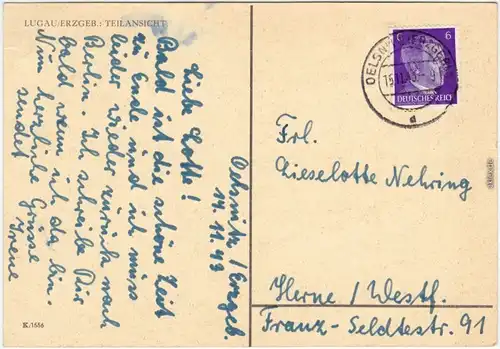 LUGAU/ERZGEB.: TEILANSICHT
Oelsnitz/Erzgeb.
14.11.43
Liebe Lotte!
Bald ist die schöne Zeit
zu Ende und ich muss
leider wieder zurück nach
Berlin. Ich schreibe Dir
bald wenn ich da bin.
Nun herzliche Grüsse
sendet
Irene
K/1656
6
DEUTSCHES REICH
a
Frl.
Lieselotte Nehring
Herne/Westf.
Franz-Seldtestr. 91